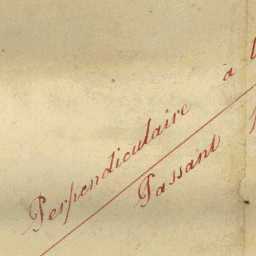 Perpendiculaire à
Passant